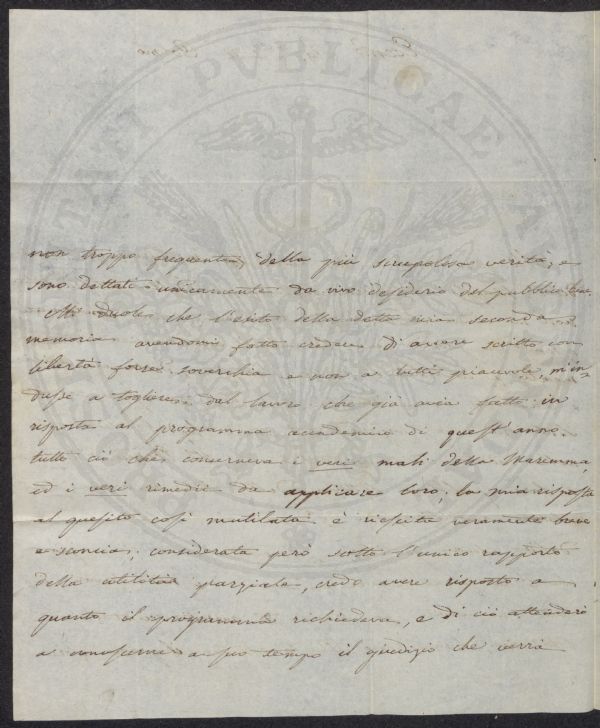 PVBLICAE
non troppo frequente, della più scrupolosa verità, e
sono dettati unicamente da vivo desiderio del pubblico
che l'esito della detta mia seconda
memoria avendomi fatto credere di avere scritto con
libertà forse soverchia e non a tutti piacevole, m'in=
dusse a togliere dal lavoro che già avea fatto in
risposta al programma accademico di quest'anno
tutto ciò che concerneva i veri mali della Maremma
ed i veri rimedii da applicare loro; la mia risposta
al quesito così mutilata è riescita veramente breve
e sconcia; considerata però sotto l'unico rapporto
della utilità parziale, credo avere risposto a
quanto il programma richiedeva, e di ciò attenderò
a conoscerne a suo tempo il giudizio che verrà